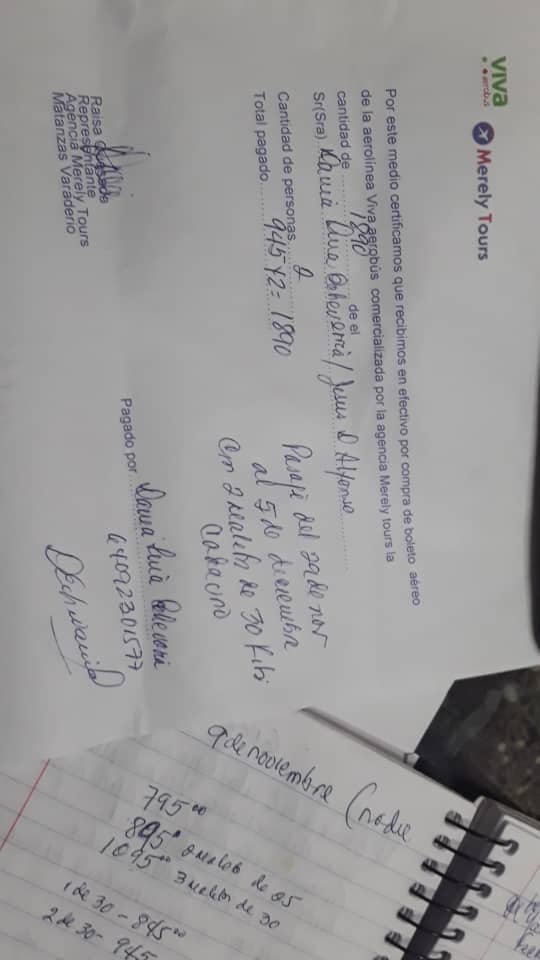 viva
aerobus
Merely Tours
Por este medio certificamos que recibimos en efectivo por compra de boleto aéreo
de la aerolínea Viva aerobús comercializada por la agencia Merely tours la
cantidad de 1890 de el
Sr(Sra). Echeverría / Jesus D Alfonso
Cantidad de personas 2
Total pagado 945 x 2 = 1890
Pasaje del 29 de nov
al 5 de diciembre
con 2 maleta de 30 Kibi
Cada uno
Raisa
Representante
Agencia Merely Tours
Matanzas Varaderio
Pagado por
64092301577
9 de noviembre (nadie
795 00
895 2 maleta de 25
1095 00 3 maleta de 30
1 de 30 - 845 00
2 de 30 - 945